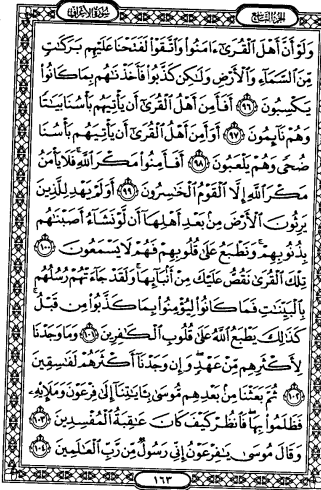 الجزء التاسع
سورة الأعراف
وَلَوْ أَنَّ أَهْلَ الْقُرَىٰٓ ءَامَنُوا وَاتَّقَوْا لَفَتَحْنَا عَلَيْهِم بَرَكَٰتٍ
مِّنَ السَّمَآءِ وَالْأَرْضِ وَلَٰكِن كَذَّبُوا فَأَخَذْنَٰهُم بِمَا كَانُوا
يَكْسِبُونَ ﴿٩٦﴾ أَفَأَمِنَ أَهْلُ الْقُرَىٰٓ أَن يَأْتِيَهُم بَأْسُنَا بَيَٰتًا
وَهُمْ نَآئِمُونَ ﴿٩٧﴾ أَوَأَمِنَ أَهْلُ الْقُرَىٰٓ أَن يَأْتِيَهُم بَأْسُنَا
ضُحًى وَهُمْ يَلْعَبُونَ ﴿٩٨﴾ أَفَأَمِنُوا مَكْرَ اللَّهِ فَلَا يَأْمَنُ
مَكْرَ اللَّهِ إِلَّا الْقَوْمُ الْخَٰسِرُونَ ﴿٩٩﴾ أَوَلَمْ يَهْدِ لِلَّذِينَ
يَرِثُونَ الْأَرْضَ مِن بَعْدِ أَهْلِهَآ أَن لَّوْ نَشَآءُ أَصَبْنَٰهُم
بِذُنُوبِهِمْ وَنَطْبَعُ عَلَىٰ قُلُوبِهِمْ فَهُمْ لَا يَسْمَعُونَ ﴿١٠٠﴾
تِلْكَ الْقُرَىٰ نَقُصُّ عَلَيْكَ مِنْ أَنۢبَآئِهَا وَلَقَدْ جَآءَتْهُمْ رُسُلُهُم
بِالْبَيِّنَٰتِ فَمَا كَانُوا لِيُؤْمِنُوا بِمَا كَذَّبُوا مِن قَبْلُ
كَذَٰلِكَ يَطْبَعُ اللَّهُ عَلَىٰ قُلُوبِ الْكَٰفِرِينَ ﴿١٠١﴾ وَمَا وَجَدْنَا
لِأَكْثَرِهِم مِّنْ عَهْدٍ وَإِن وَجَدْنَآ أَكْثَرَهُمْ لَفَٰسِقِينَ
﴿١٠٢﴾ ثُمَّ بَعَثْنَا مِنۢ بَعْدِهِم مُّوسَىٰ بِـَٔايَٰتِنَآ إِلَىٰ فِرْعَوْنَ وَمَلَإِيْهِ
فَظَلَمُوا بِهَا فَانظُرْ كَيْفَ كَانَ عَٰقِبَةُ الْمُفْسِدِينَ ﴿١٠٣﴾
وَقَالَ مُوسَىٰ يَٰفِرْعَوْنُ إِنِّي رَسُولٌ مِّن رَّبِّ الْعَٰلَمِينَ ﴿١٠٤﴾
١٦٣